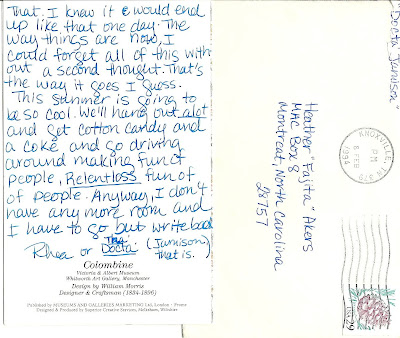 That. I knew it & would end
up like that one day. The
way things are now, I
could forget all of this with
out a second thought. That's
the way it goes I guess.
This summer is going to
be so cool. We'll hang out alot
and get cotton candy and
a coke and go driving
around making fun of
people, Relentloss fun of
of people. Anyway, I don't
have any more room and
I have to go but write back
Rhea or Tha Docta (Jamison,
that is.)
Colombine
Victoria & Albert Museum
Whitworth Art Gallery, Manchester
Design by William Morris
Designer & Craftsman (1834-1896)
Published by MUSEUMS AND GALLERIES MARKETING Ltd, London - France
Designed & Produced by Superior Creative Services, Melksham, Wiltshire
"Docta Jamison"
Heather "Fajita" Akers
MAC Box 8
Montreat, North Carolina
28757
KNOXVILLE, TN
PM
8 FEB
1994
379
USA 29